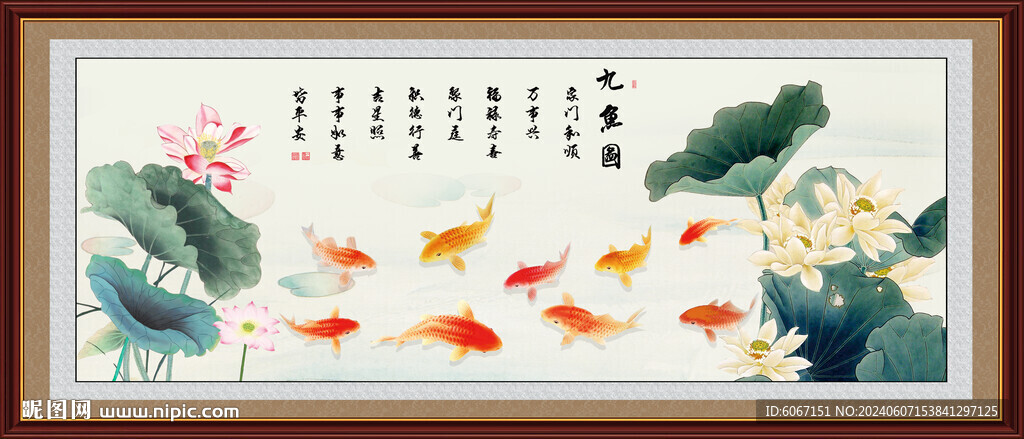 九魚圖
家门和顺
万事兴
福禄寿喜
聚门庭
积德行善
吉星照
事事如意
皆平安
昵图网 www.nipic.com
ID:6067151 NO:20240607153841297125